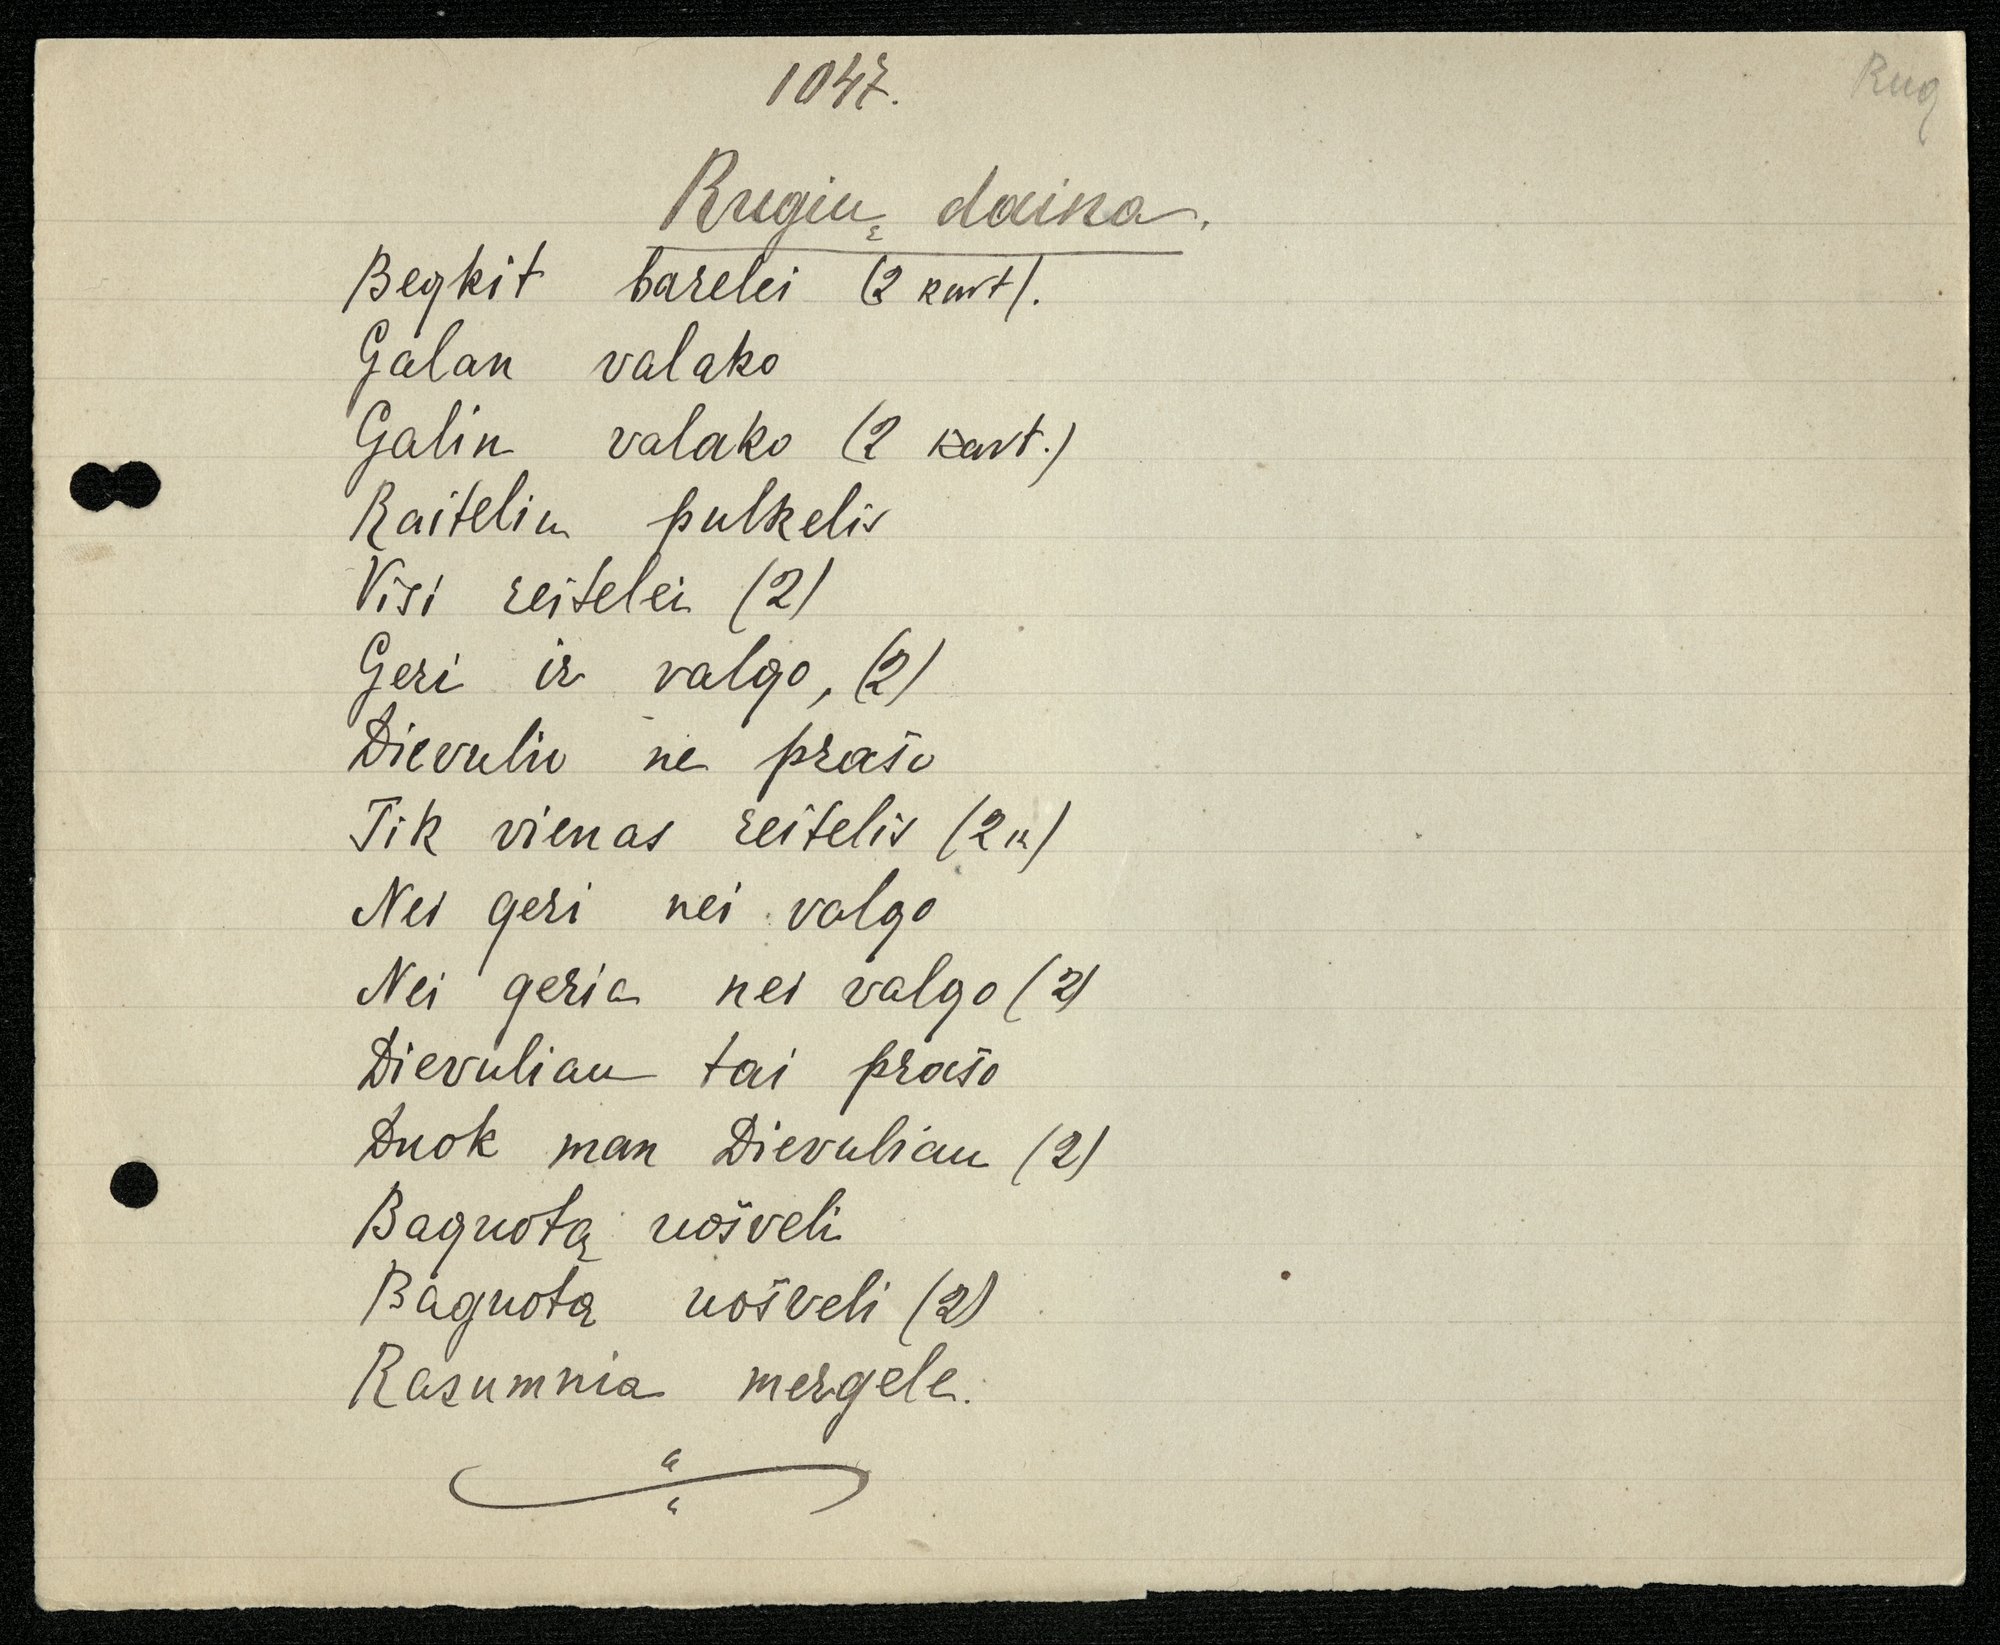 1047.
Rug
Rugių daina.
Begkit barelei (2 kart).
Galan valako
Galin valako (2 kart.)
Raiteliu pulkelis
Visi reitelei (2)
Geri ir valgo, (2)
Dievulio ne prašo
Tik vienas reitelis (2 k)
Nei geri nei valgo
Nei geria nei valgo (2)
Dievuliau tai prašo
Duok man Dievuliau (2)
Baguotą uošveli
Baguotą uošveli (2)
Rasumnia mergele.